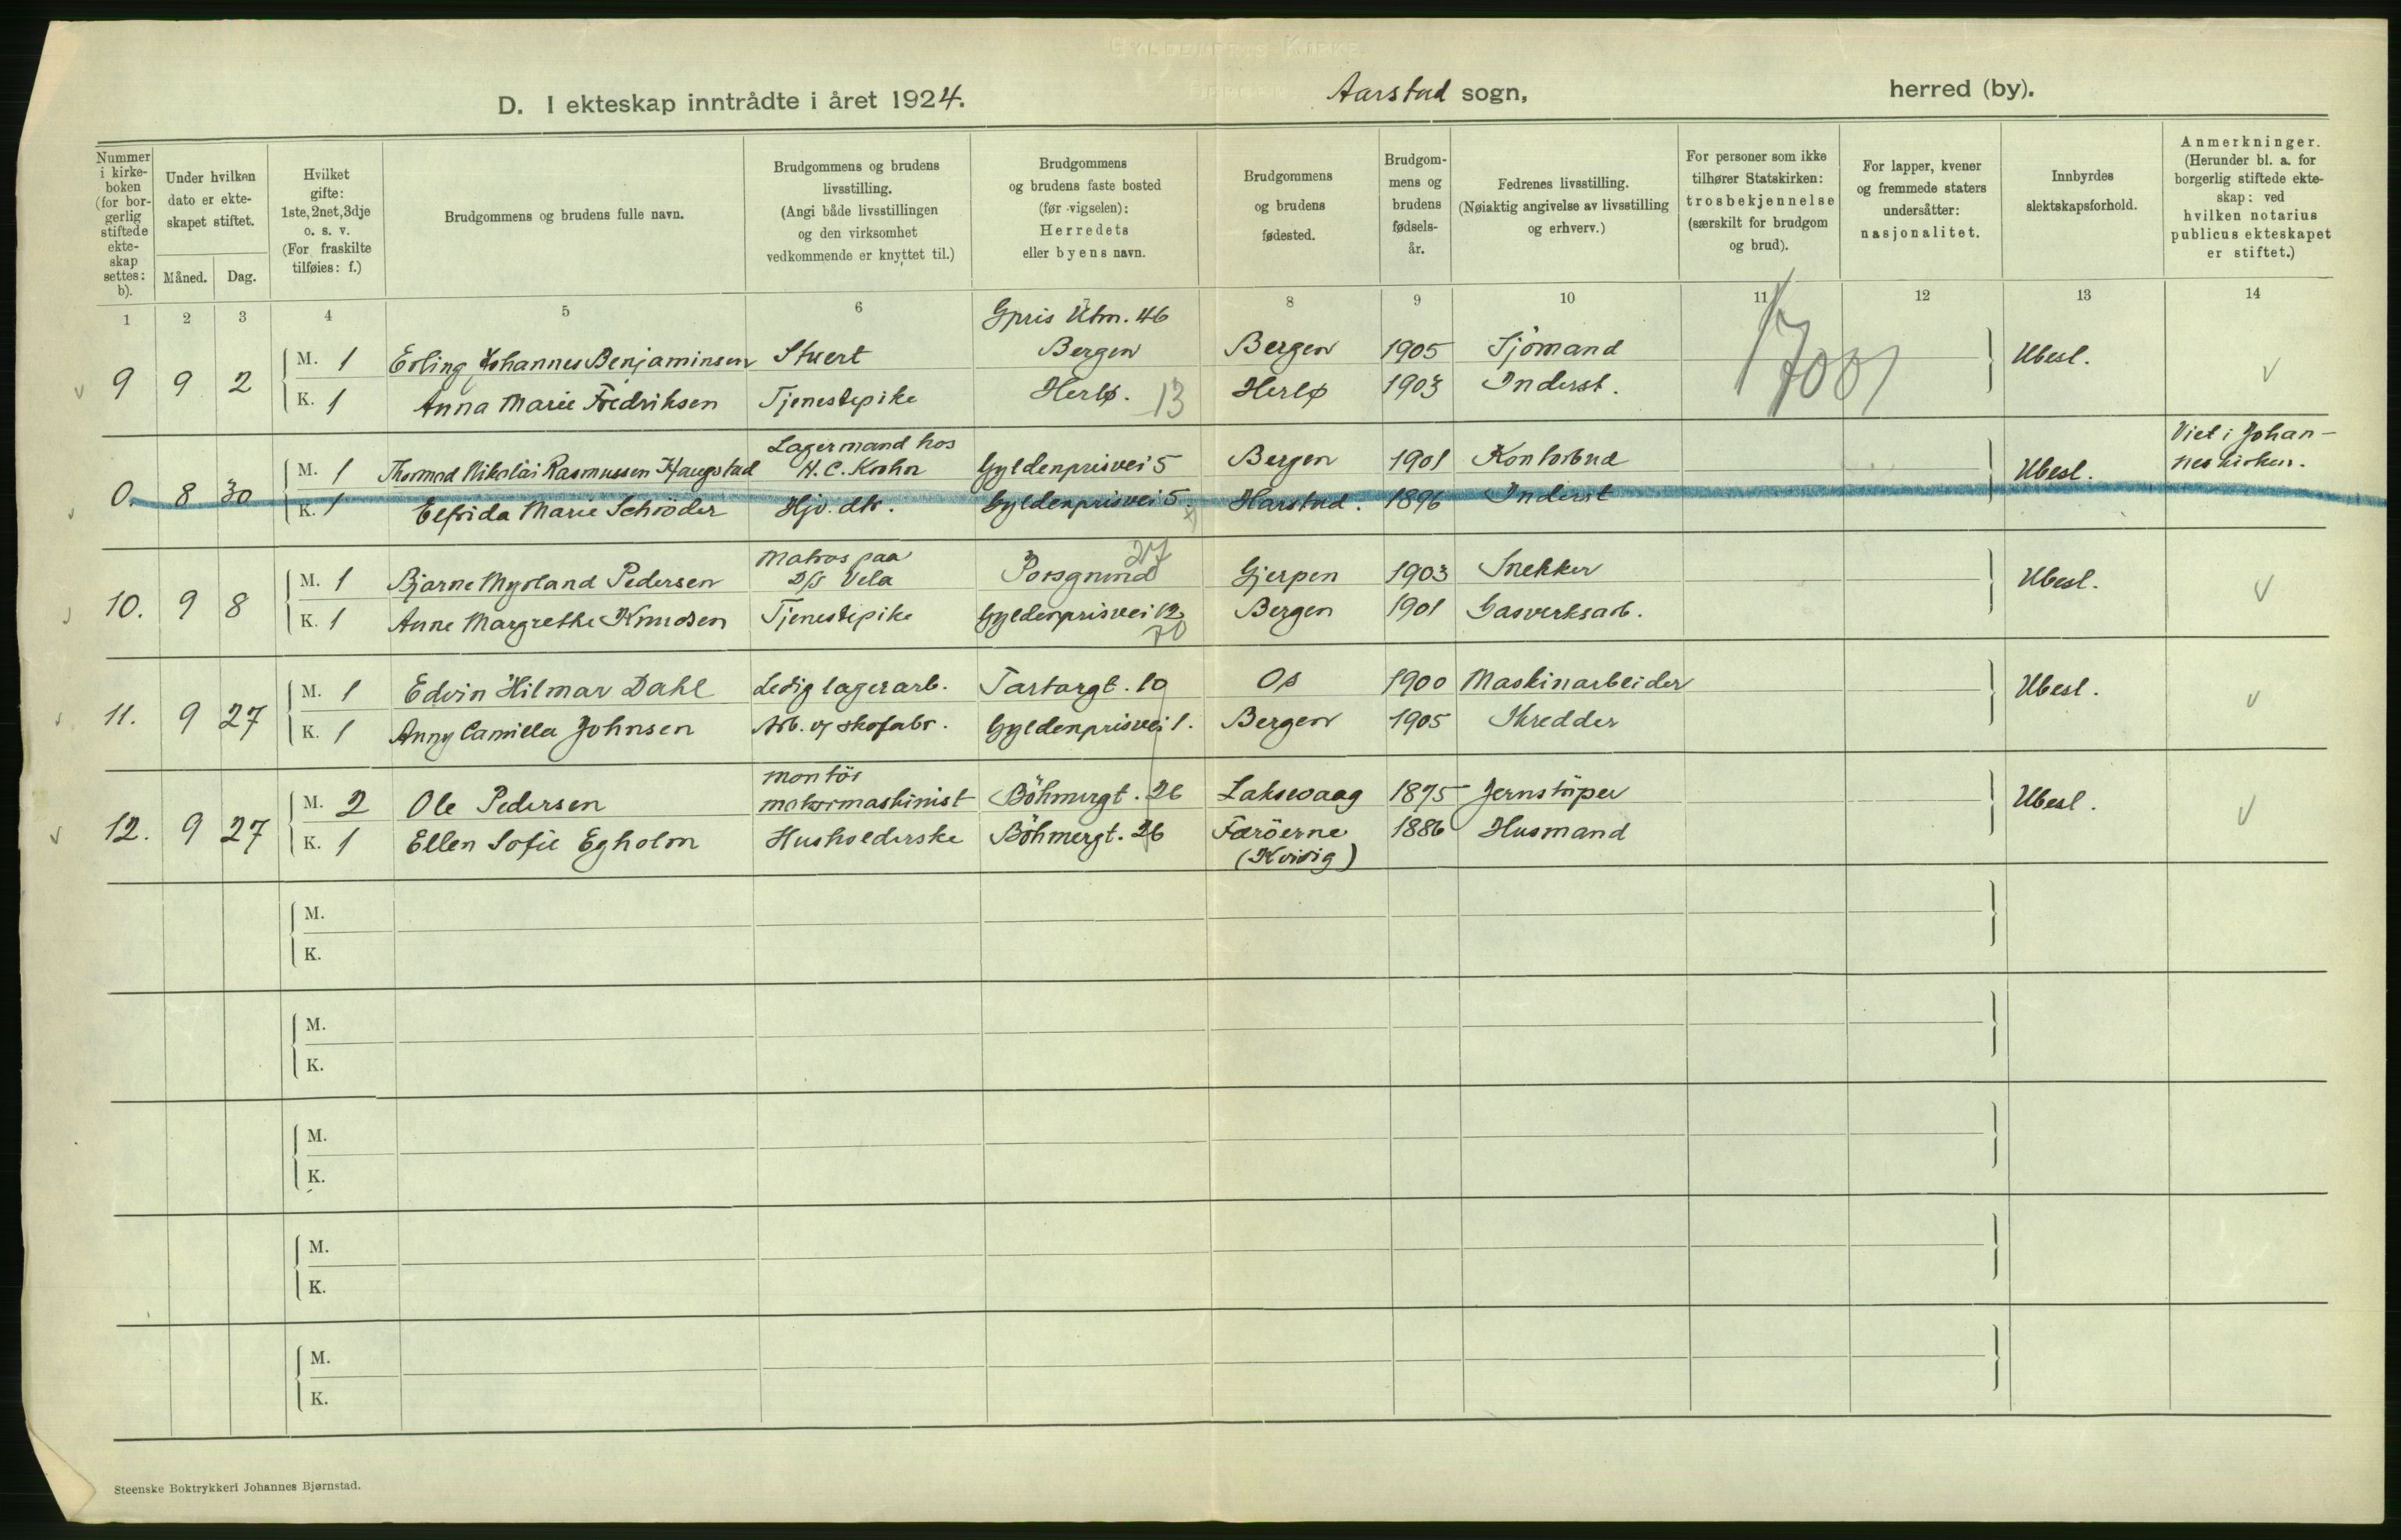 GYLDENPRIS KIRKE
BERGEN
D. I ekteskap inntrådte i året 1924.
Aarstad sogn,
herred (by).
Nummer i kirke-boken (for bor-gerlig stiftede ekte-skap settes: b).
Under hvilken dato er ekte-skapet stiftet.
Måned.
Dag.
Hvilket gifte: 1ste, 2net, 3dje o. s. v. (For fraskilte tilføies: f.)
Brudgommens og brudens fulle navn.
Brudgommens og brudens livsstilling. (Angi både livsstillingen og den virksomhet vedkommende er knyttet til.)
Brudgommens og brudens faste bosted (før vigselen): Herredets eller byens navn.
Brudgommens og brudens fødested.
Brudgom-mens og brudens fødsels-år.
Fedrenes livsstilling. (Nøiaktig angivelse av livsstilling og erhverv.)
For personer som ikke tilhører Statskirken: trosbekjennelse (særskilt for brudgom og brud).
For lapper, kvener og fremmede staters undersåtter: nasjonalitet.
Innbyrdes slektskapsforhold.
Anmerkninger. (Herunder bl. a. for borgerlig stiftede ekte-skap: ved hvilken notarius publicus ekteskapet er stiftet.)
1 2 3 4 5 6 8 9 10 11 12 13 14
Gpris Utm. 46
9 9 2 M. 1 Erling Johannes Benjaminsen Stuert Bergen Bergen 1905 Sjömand Ubesl. v
K. 1 Anna Marie Fredriksen Tjenestepike Herlø. 13 Herlø 1903 Inderst.
Lagermand hos
0. 8 30 M. 1 Thormod Nikolai Rasmussen Haugstad H. C. Krohn Gyldenprisvei 5 Bergen 1901 Kontorbud Ubesl. Viet i Johan-
neskirken.
K. 1 Elfrida Marie Schröder Hjv. dtr. Gyldenprisvei 5. Harstad. 1896 Inderst
Matros paa 27
10. 9 8 M. 1 Bjarne Myrland Pedersen D/S Vela Porsgrund Gjerpen 1903 Snekker Ubesl. v
K. 1 Anne Margrethe Knudsen Tjenestepike Gyldenprisvei 12 Bergen 1901 Gasverksarb.
70
11. 9 27 M. 1 Edvin Hilmar Dahl Ledig lagerarb. Tartargt. 10 Os 1900 Maskinarbeider Ubesl. v
K. 1 Anny Camilla Johnsen Arb. v/ skofabr. Gyldenprisvei 1. Bergen 1905 Skredder
montör
12. 9 27 M. 2 Ole Pedersen motormaskinist Böhmergt. 26 Laksevaag 1875 Jernstöper Ubesl. v
K. 1 Ellen Sofie Egholm Husholderske Böhmergt. 26 Færöerne 1886 Husmand
(Kvivig)
M.
K.
M.
K.
M.
K.
M.
K.
M.
K.
Steenske Boktrykkeri Johannes Bjørnstad.